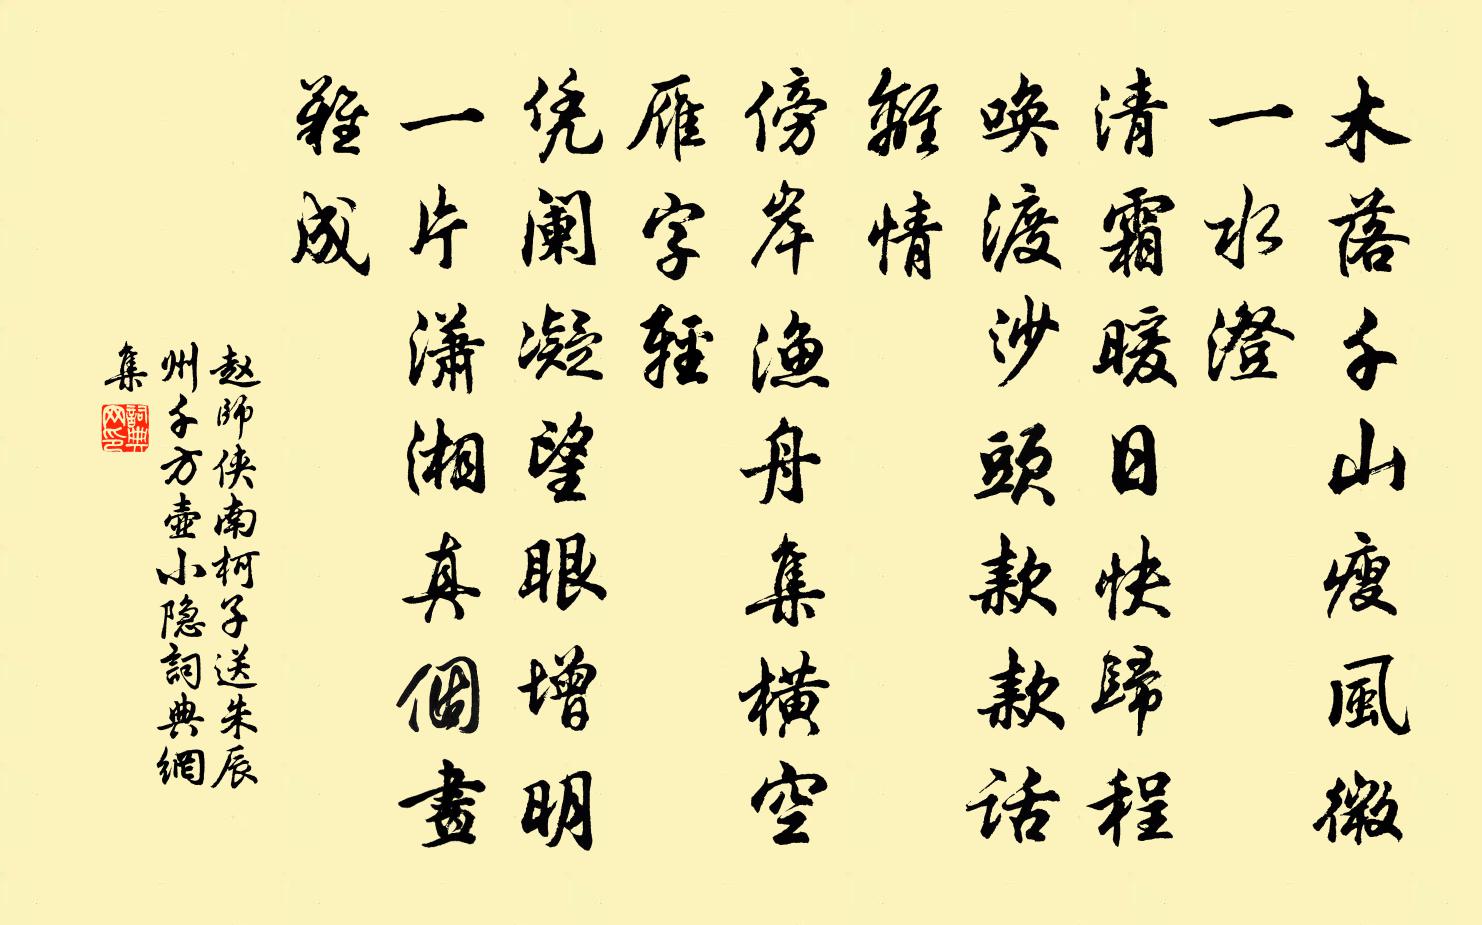 木落千山瘦風微
一水澄
清霜暖日快歸程
喚渡沙頭款款話
離情
傍岸漁舟集橫空
雁字輕
凭阑凝望眼增明
一片瀟湘真個畫
難成
赵師侠南柯子送朱辰
州千方壺小隐詞典網
集
詞典
网印